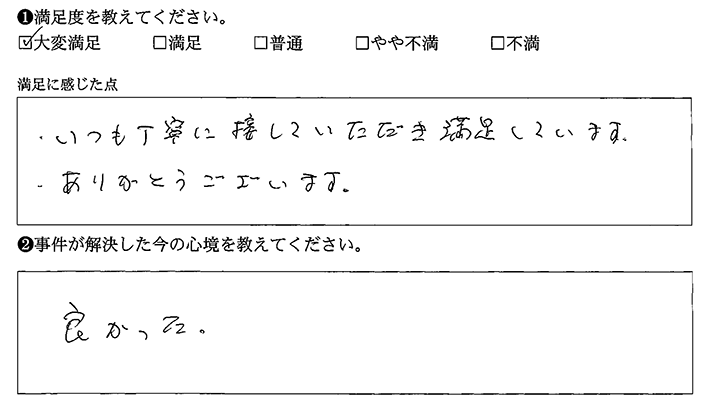 ❶満足度を教えてください。
☑大変満足 □満足 □普通 □やや不満 □不満
満足に感じた点
・いつも丁寧に接していただき満足しています。
・ありがとうございます。
❷事件が解決した今の心境を教えてください。
良かった。